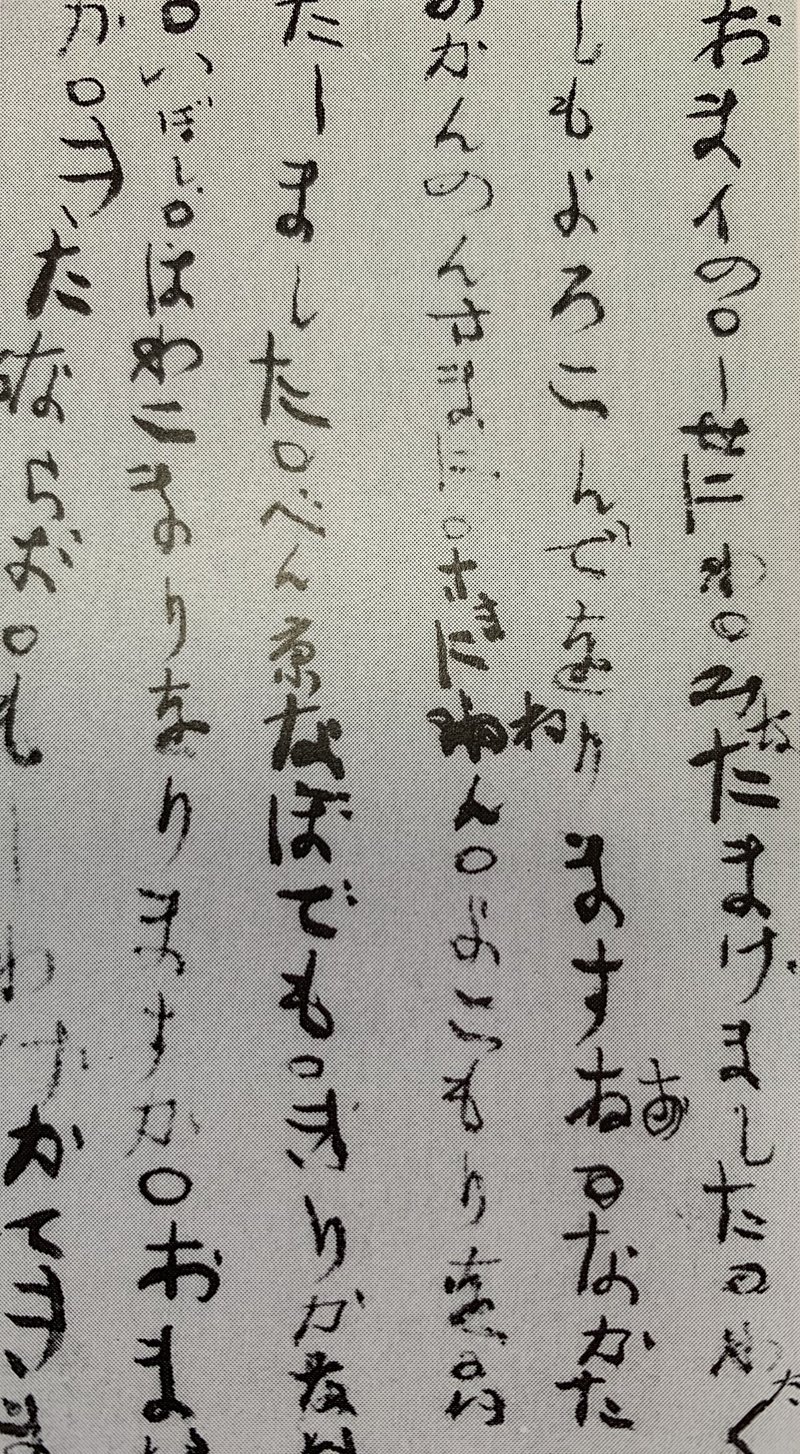 おまイの○しせにわ○みなたまげました○わたく
しもよろこんでをります○なかた
のかんのんさまに○さまにねん○よこもり
たしました○べん京なぼでも○きりかない
○いぼし○はわこまりをりますか○おま
か○きたならば○もしわけかてきま